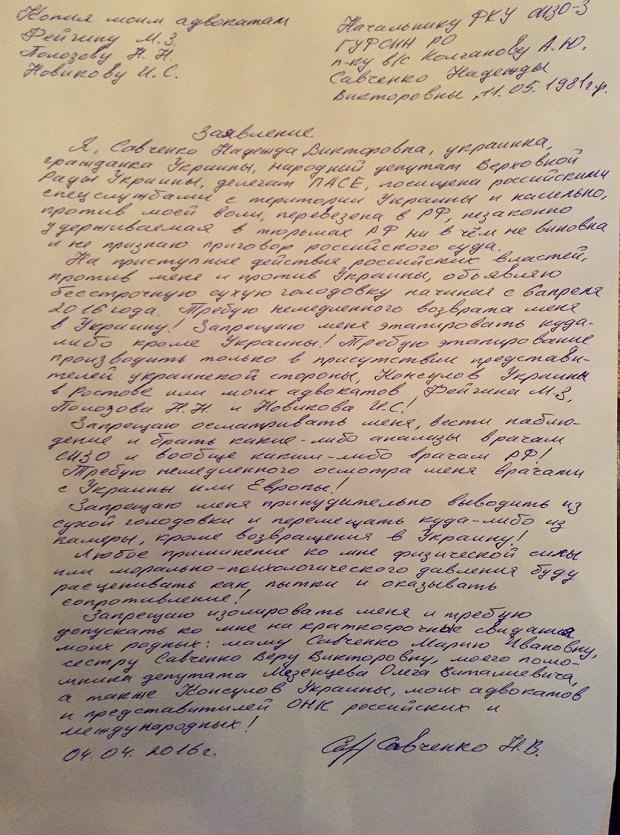 Копия моим адвокатам
Фейгину М.З,
Полозову Н.Н.
Новикову И.С.
Начальнику ФКУ СИЗО-3
ГУФСИН РО
п-ку в/с Колганову А.Ю.
Савченко Надежды
Викторовны, 11.05.1981г.р.
Заявление
Я, Савченко Надежда Викторовна, украинка,
гражданка Украины, народный депутат Верховной
Рады Украины, делегат ПАСЕ, похищена российскими
спецслужбами с територии Украины и насильно,
против моей воли, перевезена в РФ, незаконно
удерживаемая в тюрьмах РФ ни в чём не виновна
и не признаю приговор российского суда.
На приступные действия российских властей,
против меня и против Украины, объявляю
бессрочную сухую голодовку начиная с 6 апреля
2016 года. Требую немедленного возврата меня
в Украину! Запрещаю меня этапировать куда-
либо кроме Украины! Требую этапирование
производить только в присутствии представи-
телей украинской стороны, Консулов Украины
в Ростове или моих адвокатов Фейгина М.З,
Полозова Н.Н и Новикова И.С!
Запрещаю осматривать меня, вести наблю-
дение и брать какие-либо анализы врачам
СИЗО и вообще каким-либо врачам РФ!
Требую немедленного осмотра меня врачами
с Украины или Европы!
Запрещаю меня принудительно выводить из
сухой голодовки и перемещать куда-либо из
камеры, кроме возвращения в Украину!
Любое приминение ко мне физической силы
или морально-психологического давления буду
расценивать как пытки и оказывать
сопротивление!
Запрещаю изолировать меня и требую
допускать ко мне на краткосрочные свидания
моих родных: маму Савченко Марию Ивановну,
сестру Савченко Веру Викторовну, моего помо-
шника депутата Мезенцева Олега Виталиевича,
а также Консулов Украины, моих адвокатов
и представитилей ОНК российских и
международных!
04.04.2016г. Савченко Н.В.